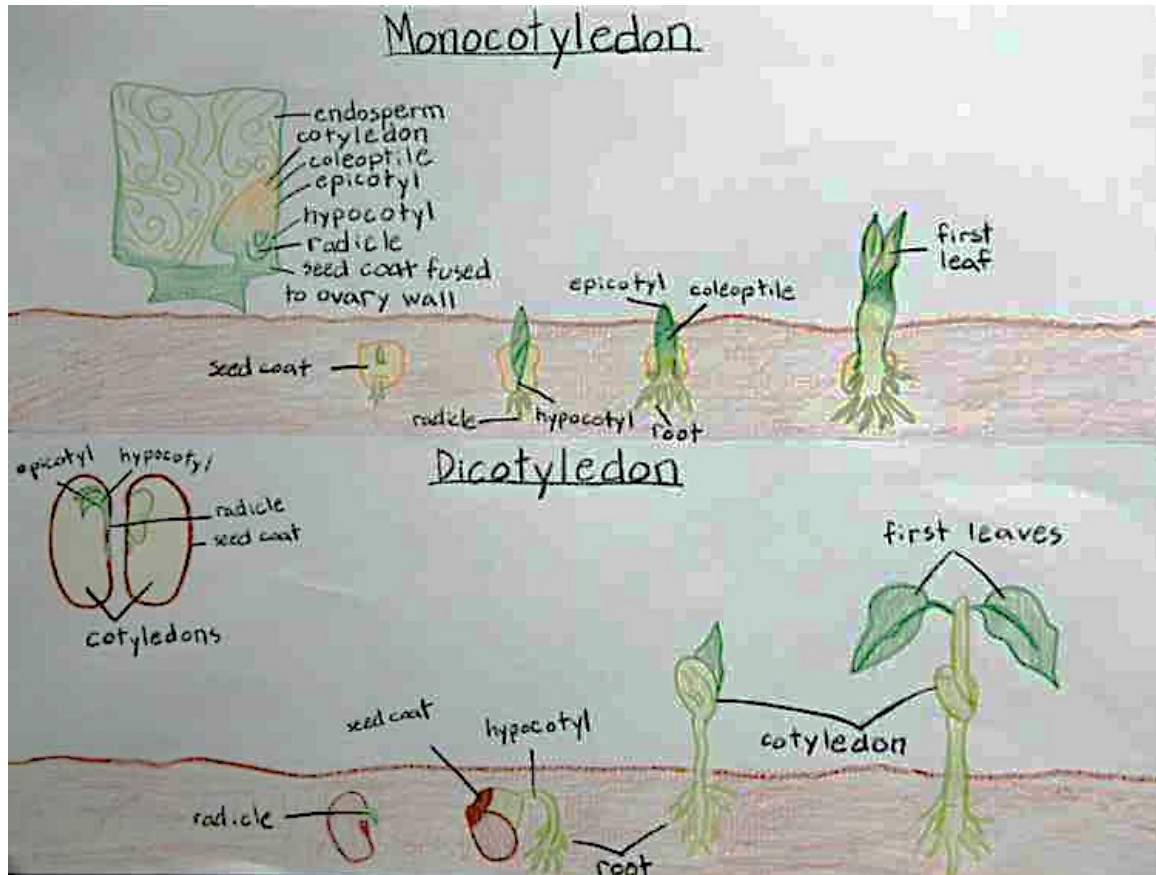 Monocotyledon
endosperm
cotyledon
coleoptile
epicotyl
hypocotyl
radicle
seed coat fused
to ovary wall
seed coat
radicle
hypocotyl
epicotyl
coleoptile
root
first
leaf
Dicotyledon
epicotyl
hypocotyl
radicle
seed coat
cotyledons
radicle
seed coat
hypocotyl
root
cotyledon
first leaves